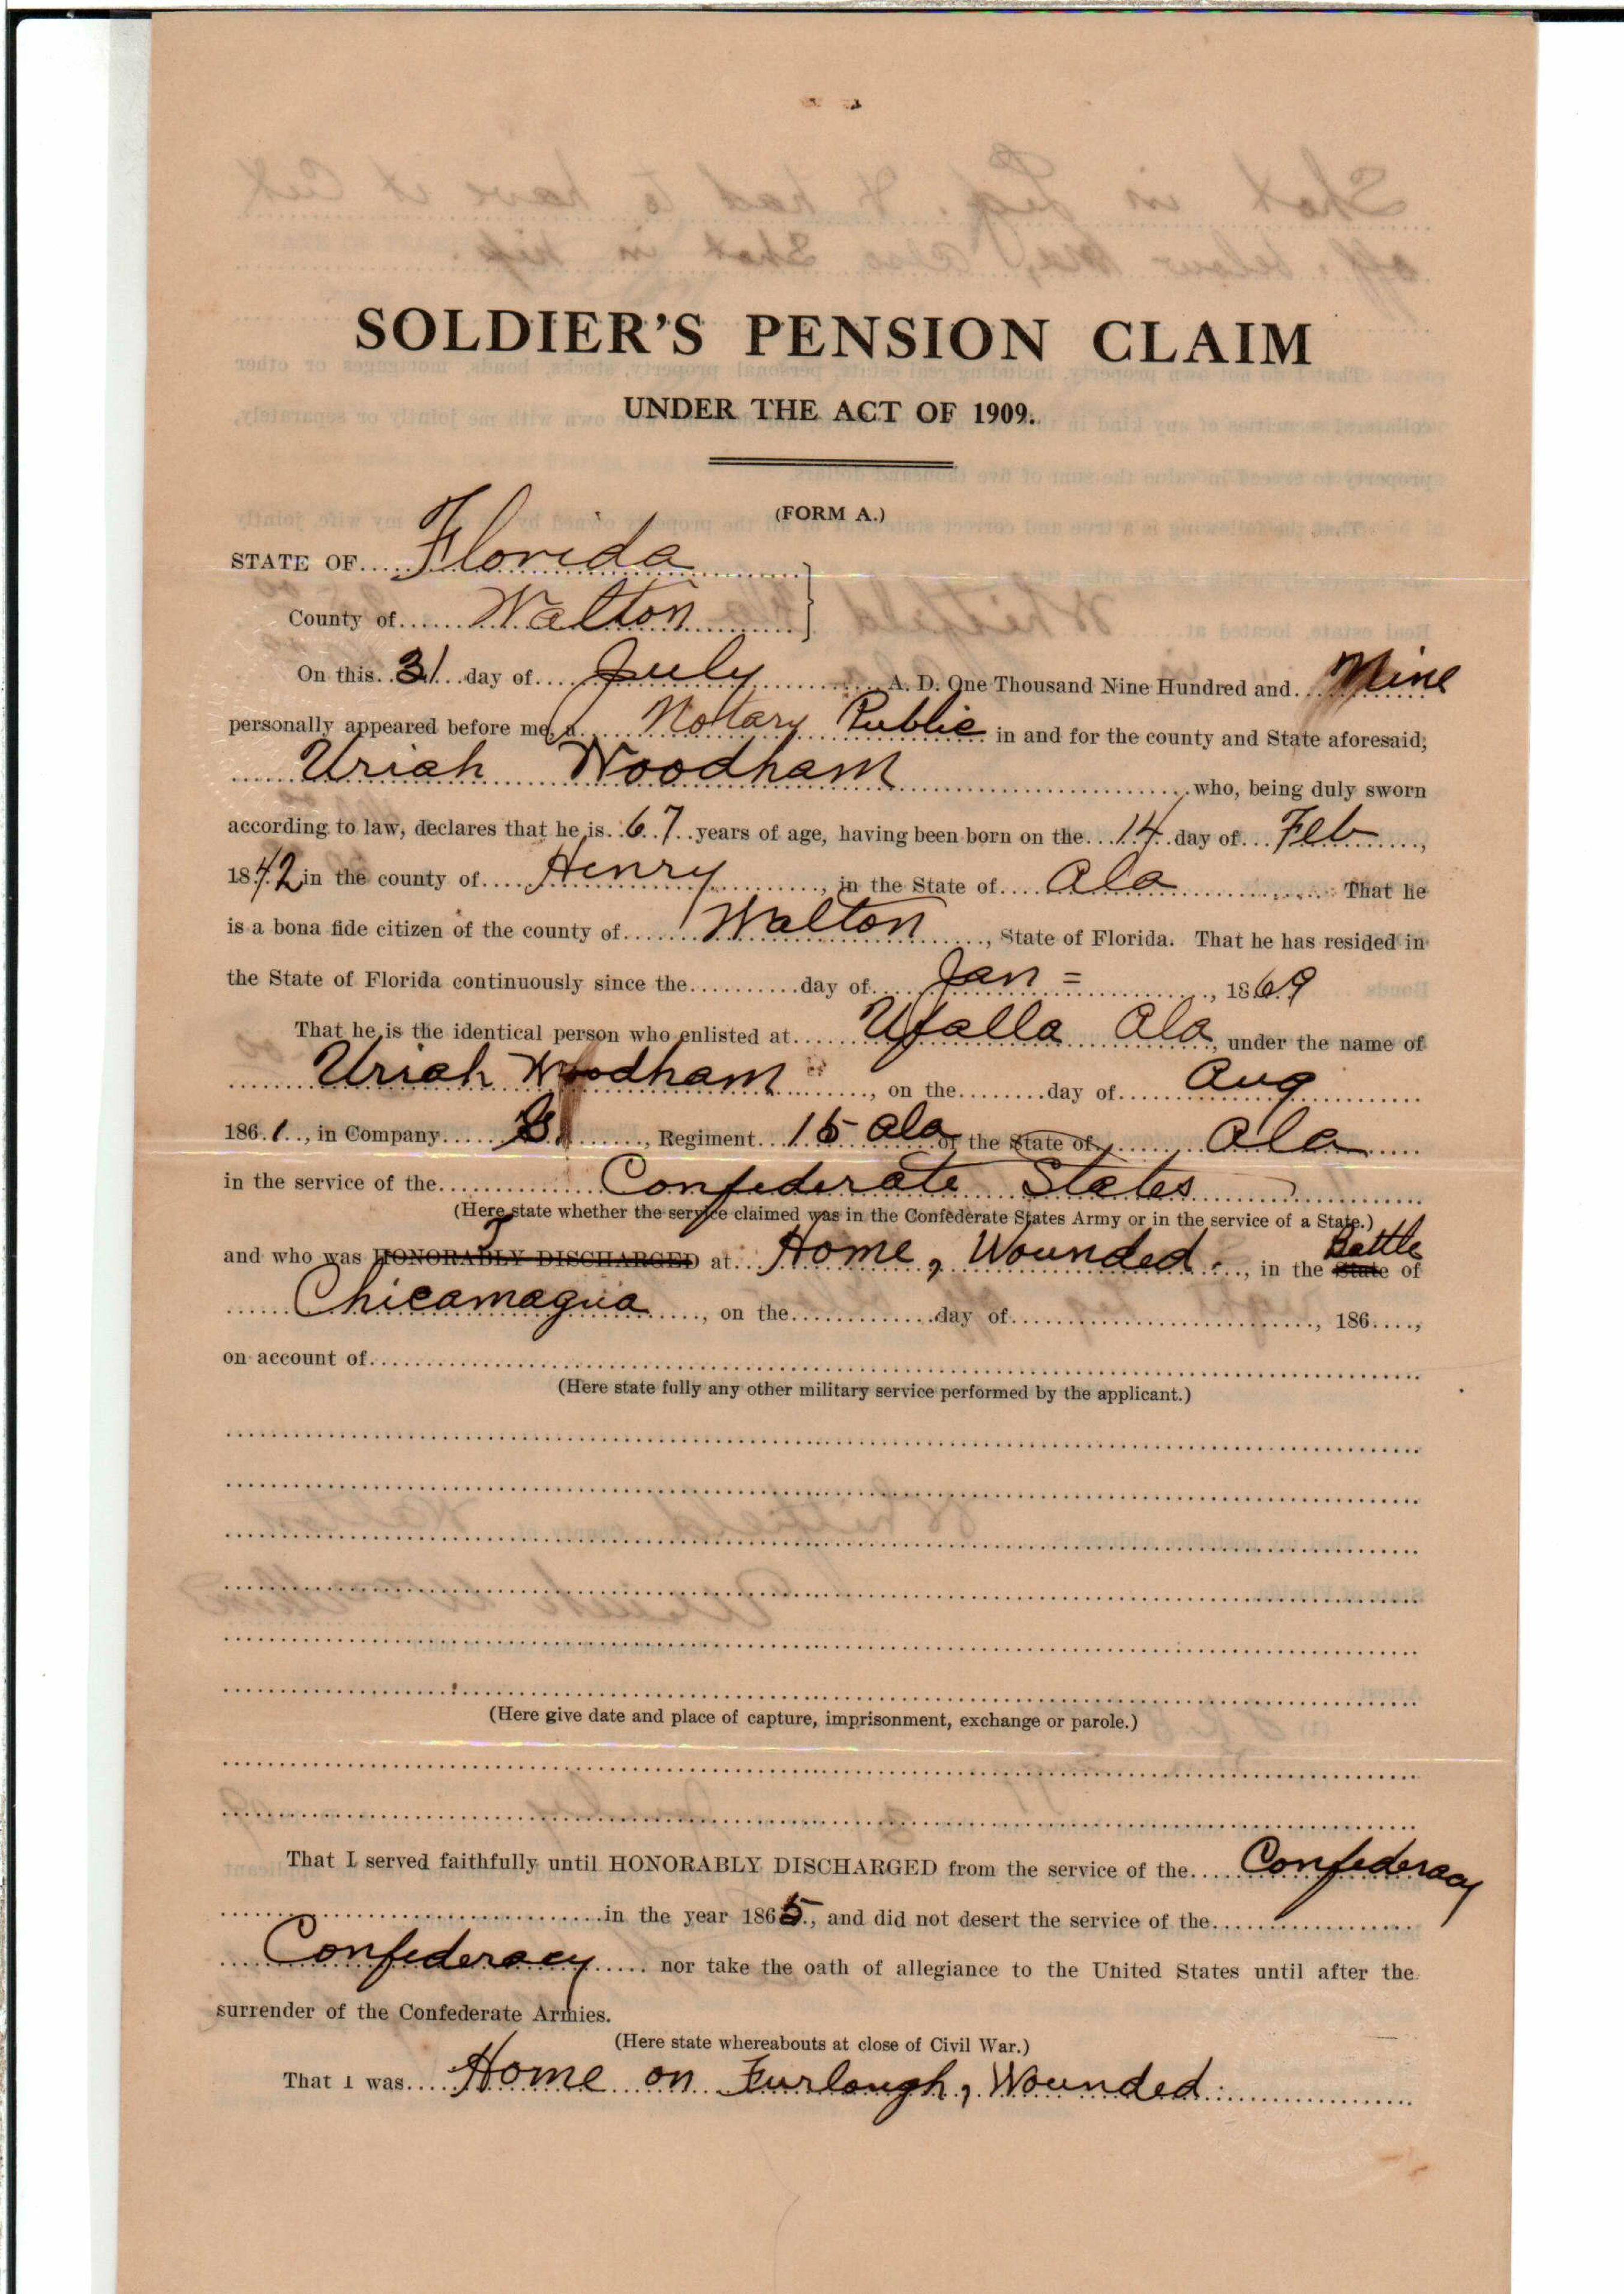 SOLDIER'S PENSION CLAIM
UNDER THE ACT OF 1909.
(FORM A.)
STATE OF Florida
County of Walton
On this 31 day of July A. D. One Thousand Nine Hundred and Nine
personally appeared before me, a Nottary Public in and for the county and State aforesaid,
Uriah Woodham who, being duly sworn
according to law, declares that he is 67 years of age, having been born on the 14 day of Feb,
1842 in the county of Henry, in the State of Ala That he
is a bona fide citizen of the county of Walton, State of Florida. That he has resided in
the State of Florida continuously since the day of Jan =, 1869
That he is the identical person who enlisted at Ufalla Ala, under the name of
Uriah Woodham, on the day of Aug
1861, in Company, Regiment 15 Ala of the State of Ala
in the service of the Confederate States
(Here state whether the service claimed was in the Confederate States Army or in the service of a State.)
and who was HONORABLY DISCHARGED at Home, Wounded, in the State Battle of
Chicamagua, on the day of, 186,
on account of
(Here state fully any other military service performed by the applicant.)
(Here give date and place of capture, imprisonment, exchange or parole.)
That I served faithfully until HONORABLY DISCHARGED from the service of the Confederacy
in the year 1865, and did not desert the service of the
Confederacy nor take the oath of allegiance to the United States until after the
surrender of the Confederate Armies.
(Here state whereabouts at close of Civil War.)
That I was Home on Furlough, Wounded